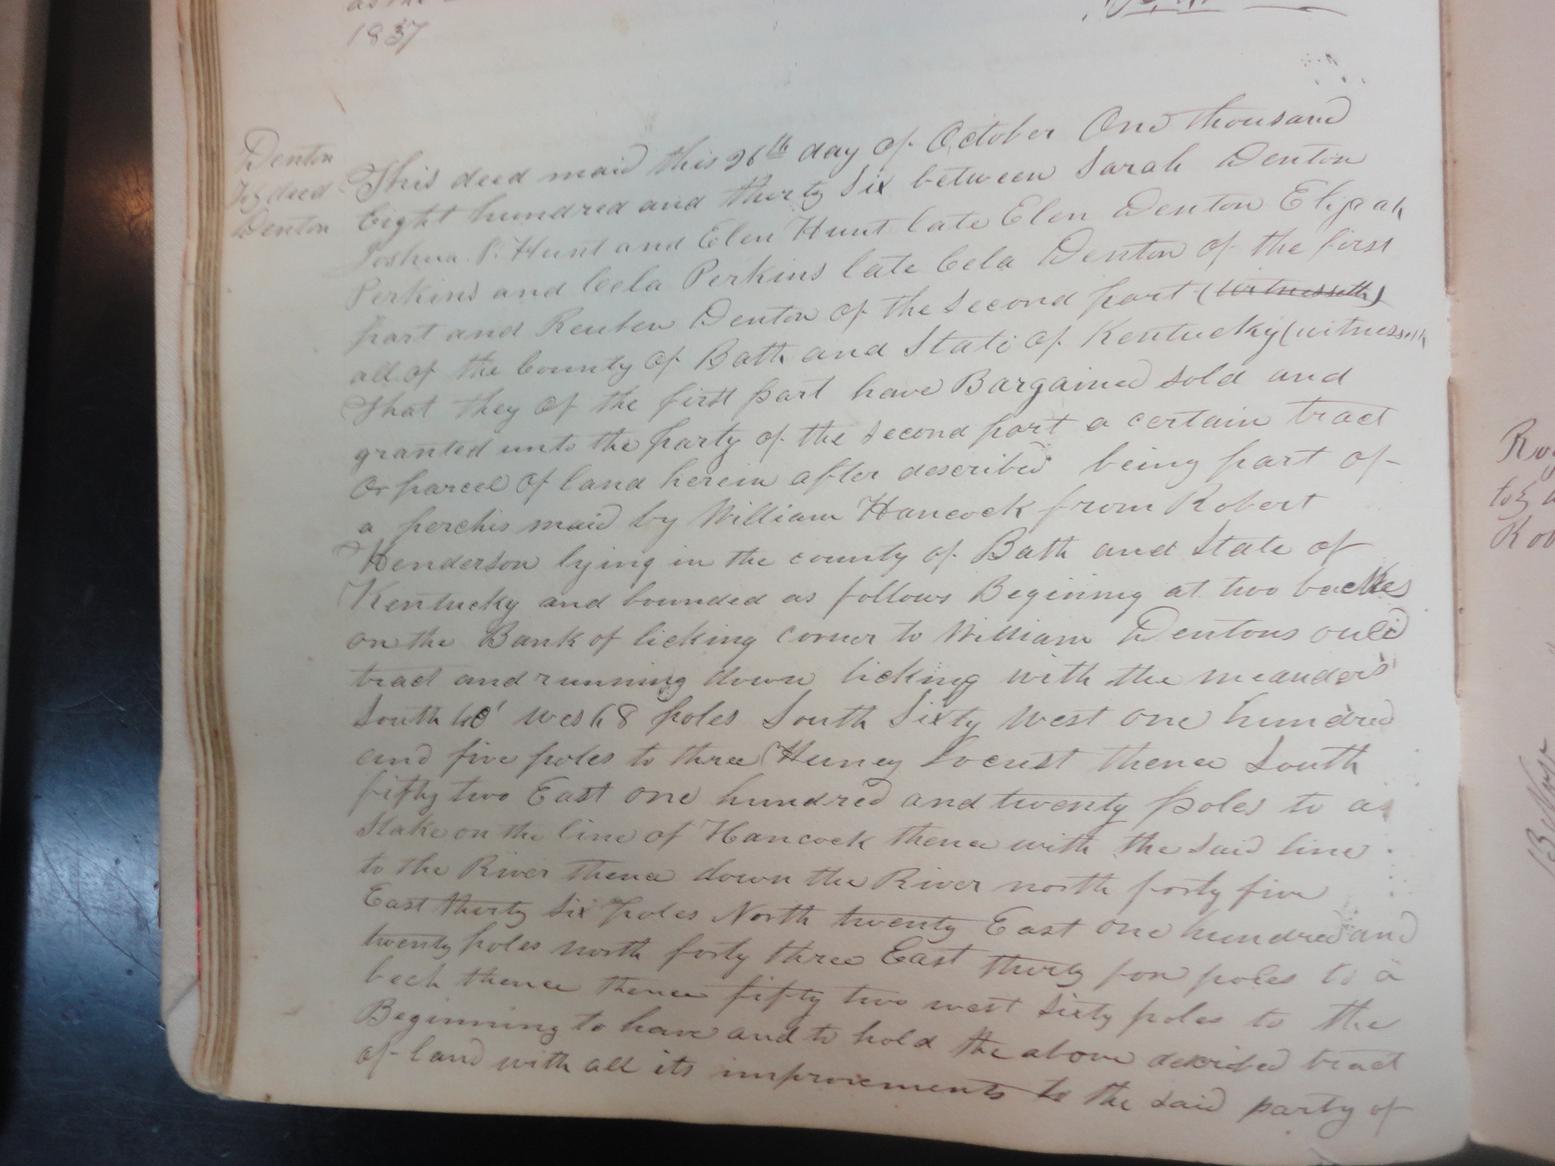 as the
1837
Denton
To } deed
Denton
This deed maid this 26th day of October One thousand
Eight hundred and thirty Six between Sarah Denton
Joshua S. Hunt and Elen Hunt late Elen Denton Elijah
Perkins and Cela Perkins late Cela Denton of the first
part and Reuben Denton of the Second part (Witnesseth)
all of the County of Bath and State of Kentucky (witnesseth
That they of the first part have Bargained sold and
granted unto the party of the second part a certain tract
Or parcel of land herein after described being part of
a perchis maid by William Hancock from Robert
Henderson lying in the county of Bath and State of
Kentucky and bounded as follows Begining at two beches
on the Bank of licking corner to William Dentons ould
tract and running down licking with the meanders
South west 8 poles South Sixty West one hundred
and five poles to three Huney Locust thence South
fifty two East one hundred and twenty poles to a
Stake on the line of Hancock thence with the said line
to the River thence down the River north forty five
East thirty Six poles North twenty East one hundred and
twenty poles north forty three East thirty fore poles to a
bech thence thence fifty two west Sixty poles to the
Beginning to have and to hold the above described tract
of land with all its improvements to the said party of